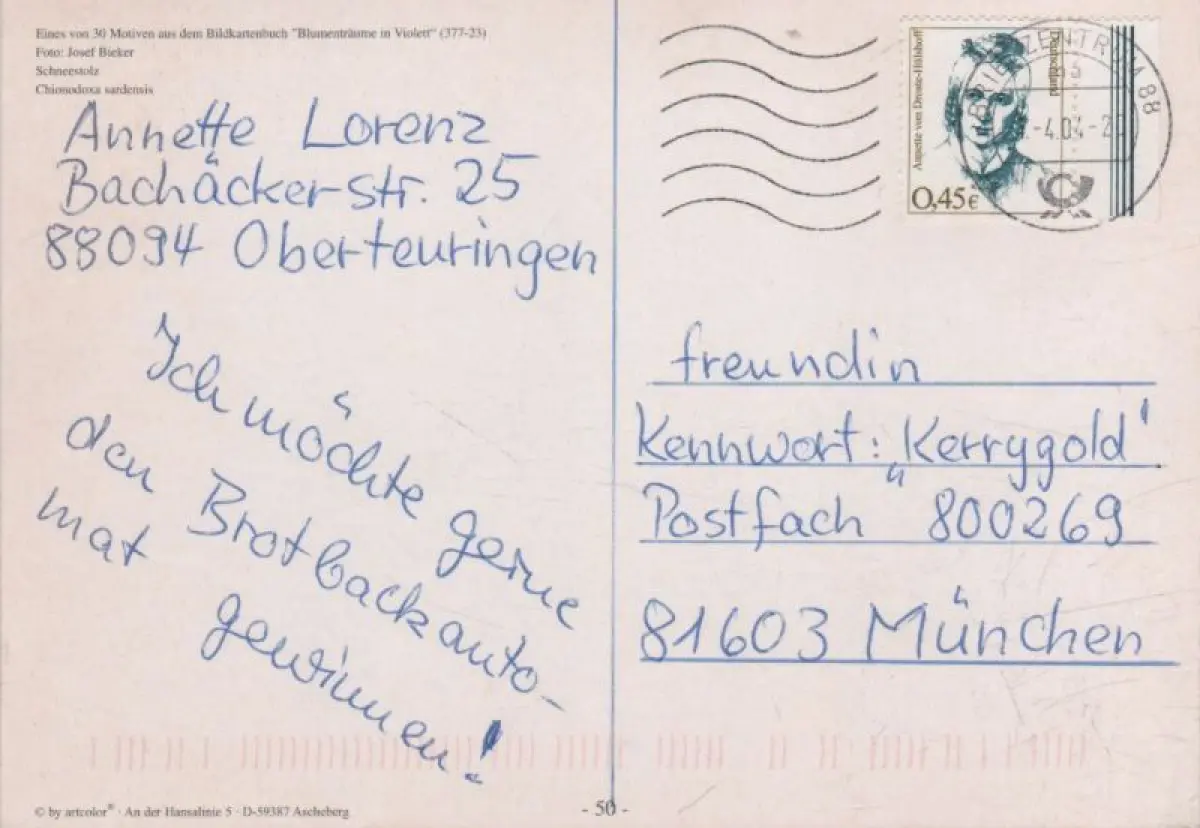 Eines von 30 Motiven aus dem Bildkartenbuch "Blumenträume in Violett" (377-23)
Foto: Josef Bieker
Schneestolz
Chionodoxa sardensis
Annette Lorenz
Bachäckerstr. 25
88094 Oberteuringen
Ich möchte gerne
den Brotbackauto-
mat
gewinnen!
© by artcolor® · An der Hansalinie 5 · D-59387 Ascheberg
- 50 -
Annette von Droste-Hülshoff
Deutschland
0,45€
BRIEFZENTRUM 88
-4.04-2
freundin
Kennwort: „Kerrygold'
Postfach 800269
81603 München